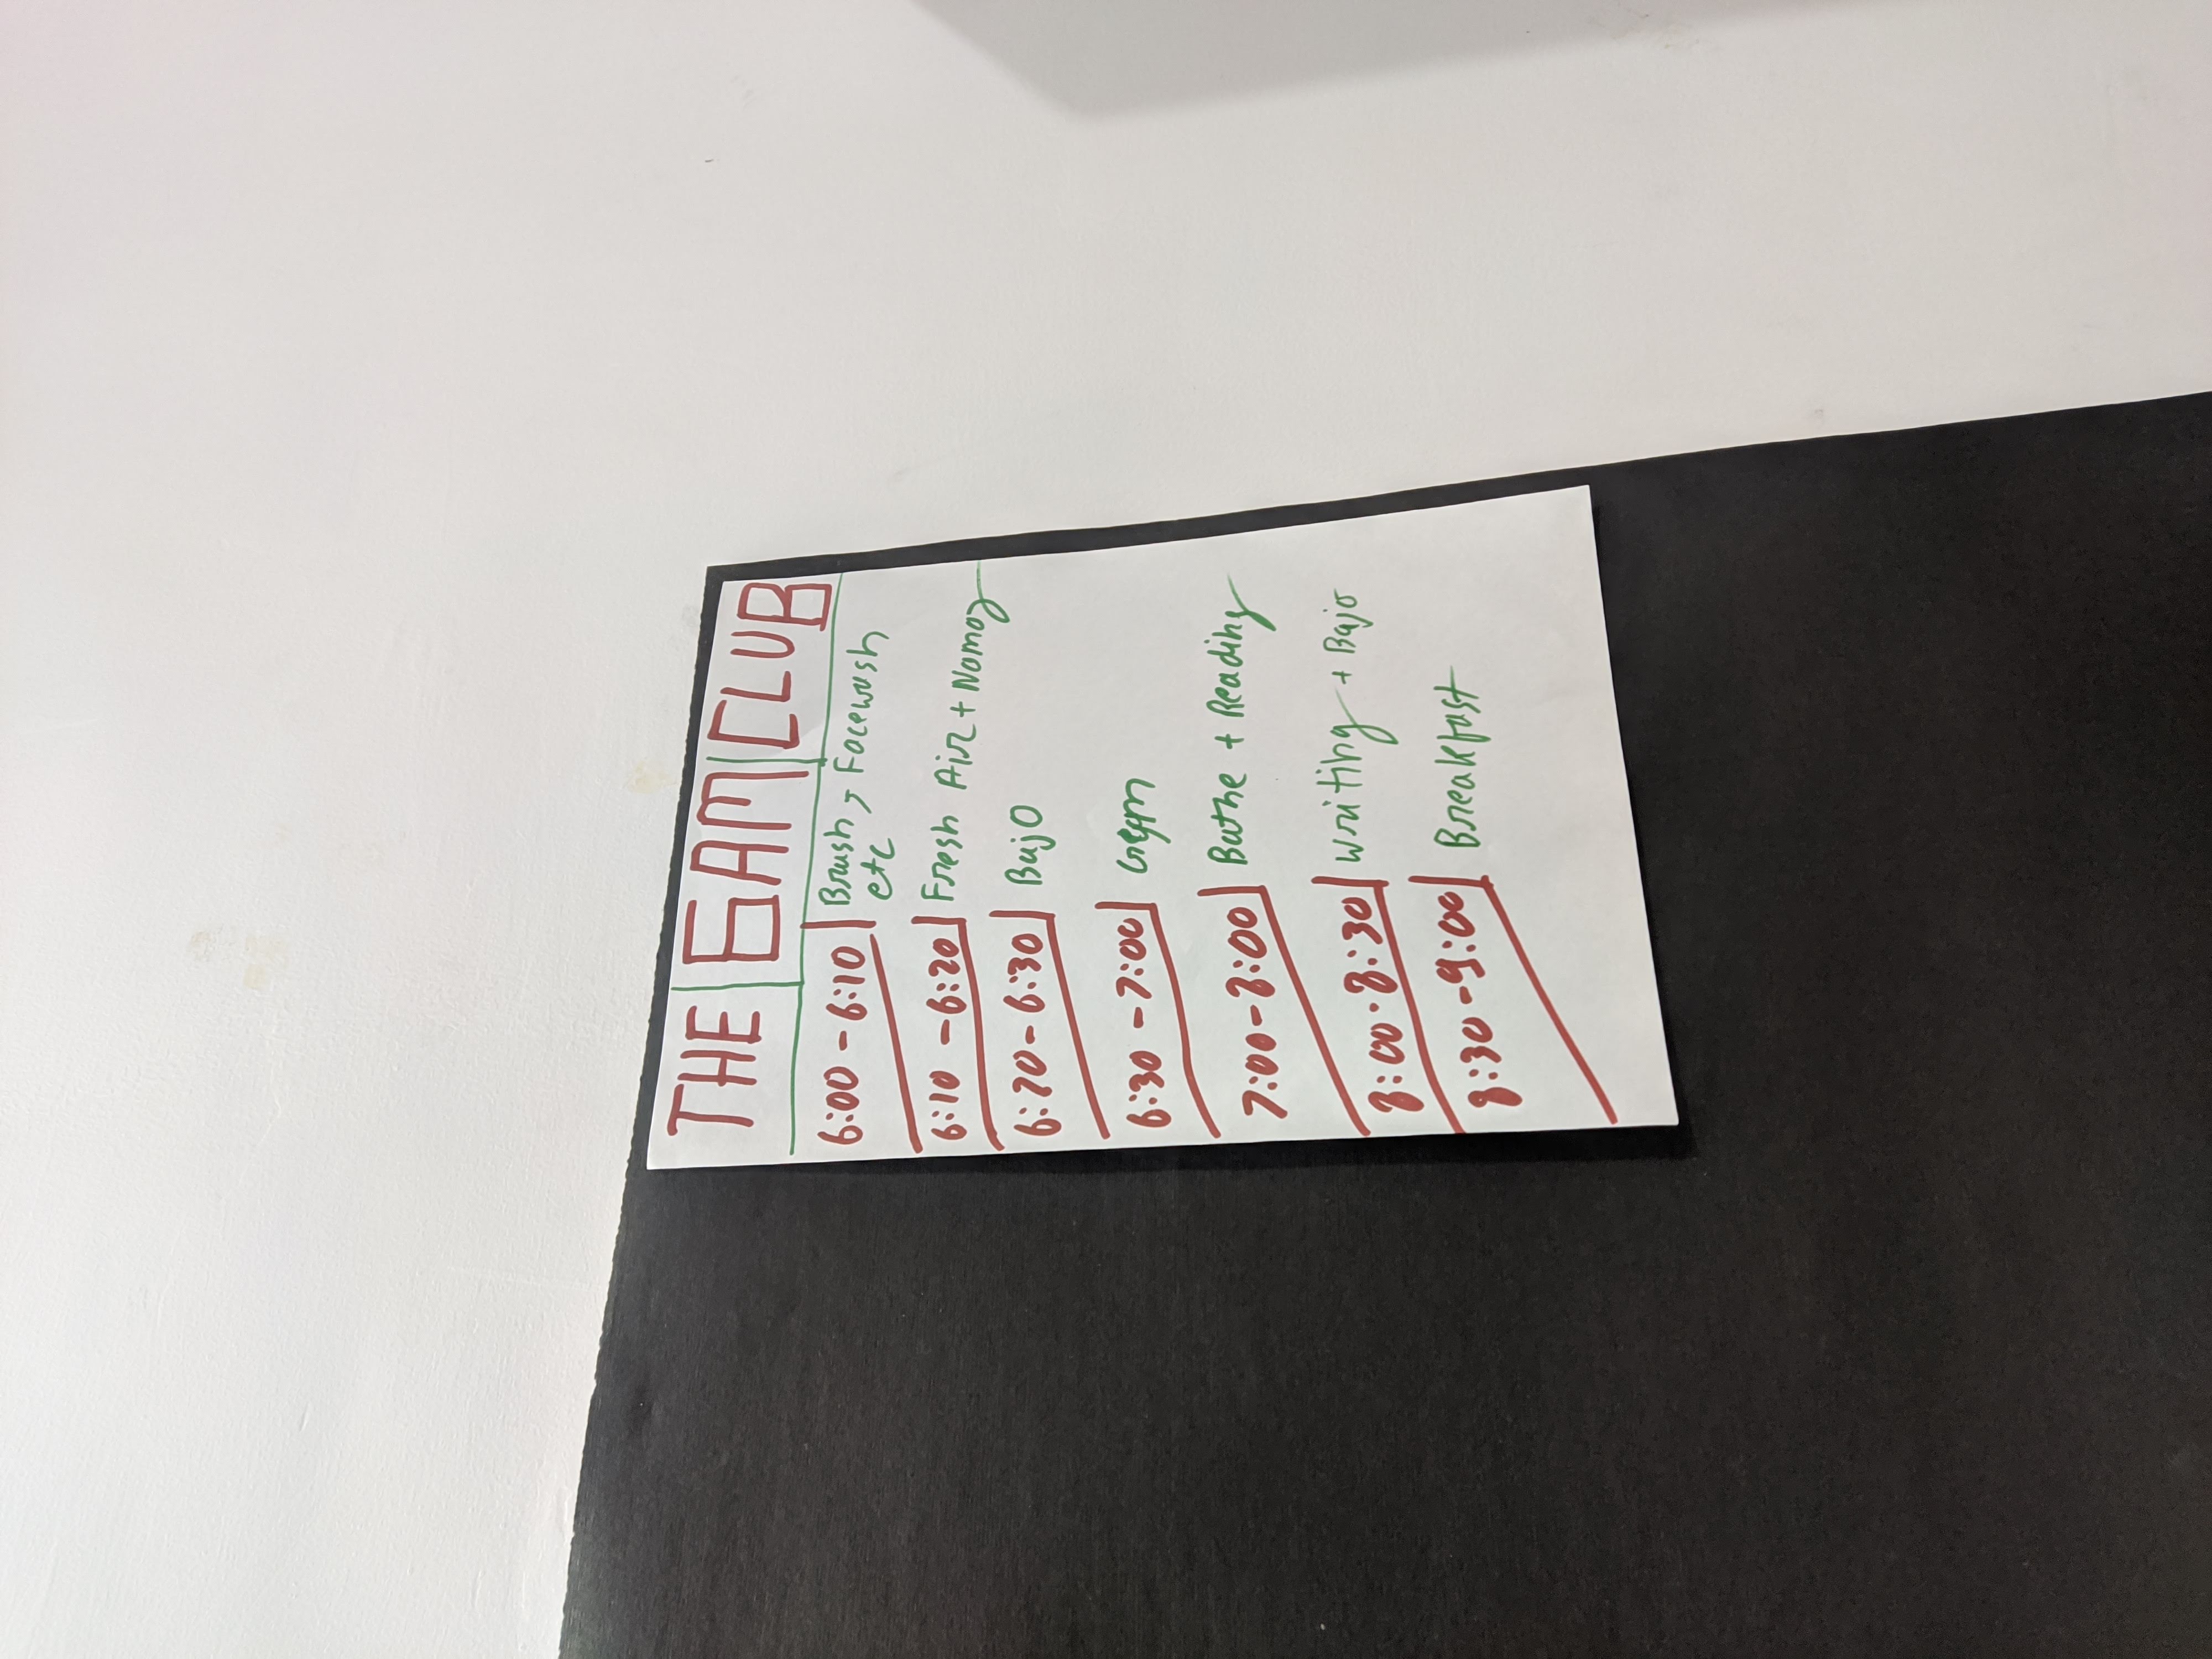 THE 6AM CLUB
6:00 - 6:10 Brush, Facewash
etc
6:10 - 6:20 Fresh Air + Namaz
6:20 - 6:30 Bujo
6:30 - 7:00 Gym
7:00 - 8:00 Bathe + Reading
8:00 - 8:30 Writing + Bujo
8:30 - 9:00 Breakfast